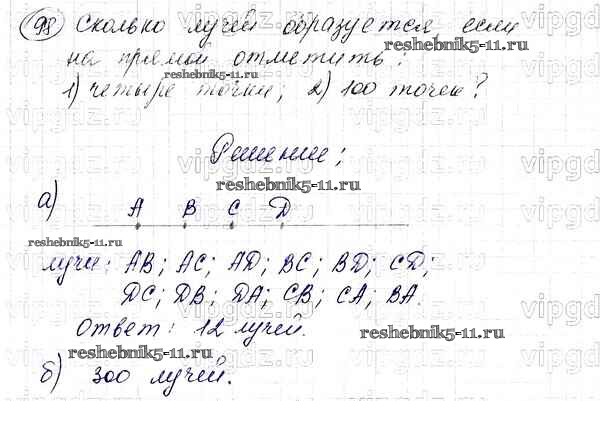 98) Сколько лучей образуется если
на прямой отметить:
1) четыре точки; 2) 100 точек?
reshebnik5-11.ru
reshebnik5-11.ru
Решение;
reshebnik5-11.ru
а)
A B C D
reshebnik5-11.ru
лучи: AB; AC; AD; BC; BD; CD;
DC; DB; DA; CB; CA; BA.
Ответ: 12 лучей.
reshebnik5-11.ru
reshebnik5-11.ru
б) 300 лучей.
vipgdz.ru